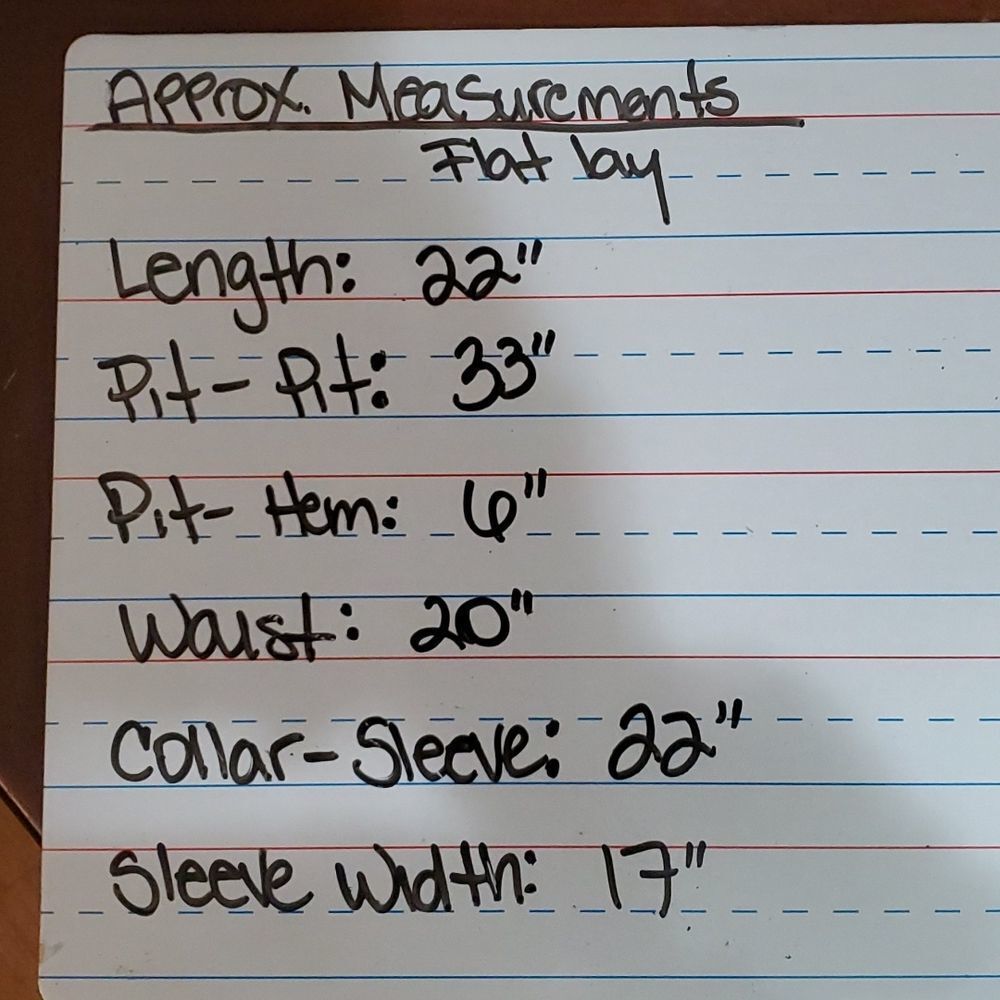 Approx. Measurements
Flat lay
Length: 22"
Pit-Pit: 33"
Pit-Hem: 6"
Waist: 20"
Collar-Sleeve: 22"
Sleeve Width: 17"